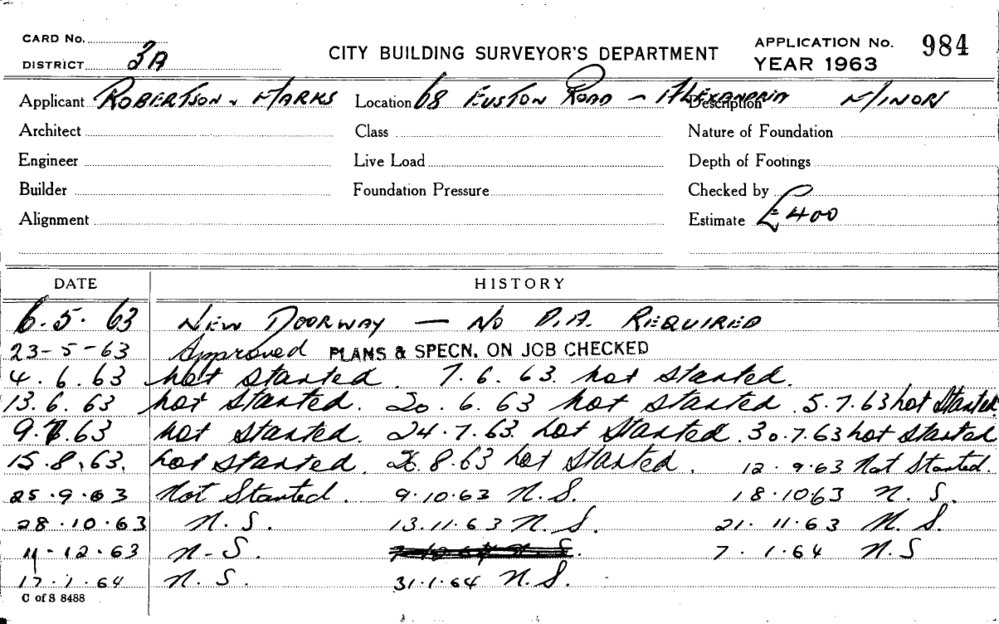 CARD No.
DISTRICT 3A
CITY BUILDING SURVEYOR'S DEPARTMENT
APPLICATION No. 984
YEAR 1963
Applicant ROBERTSON & MARKS Location 68 EUSTON ROAD - ALEXANDRIA Description MINOR
Architect Class Nature of Foundation
Engineer Live Load Depth of Footings
Builder Foundation Pressure Checked by
Alignment Estimate £400
DATE HISTORY
6.5.63 NEW DOORWAY — NO D.A. REQUIRED
23-5-63 Approved PLANS & SPECN. ON JOB CHECKED
4.6.63 not started. 7.6.63. not started.
13.6.63 not started. 20.6.63 not started. 5.7.63 not started
9.7.63 not started. 24.7.63. not started. 30.7.63 not started
15.8.63. not started. 26.8.63 not started. 12.9.63 Not Started.
25.9.63 Not Started. 9.10.63 N.S. 18.10.63 N.S.
28.10.63 N.S. 13.11.63 N.S. 21.11.63 N.S.
11.12.63 N-S. 7.1.64 N.S
17.1.64 N.S. 31.1.64 N.S.
C of S 8488